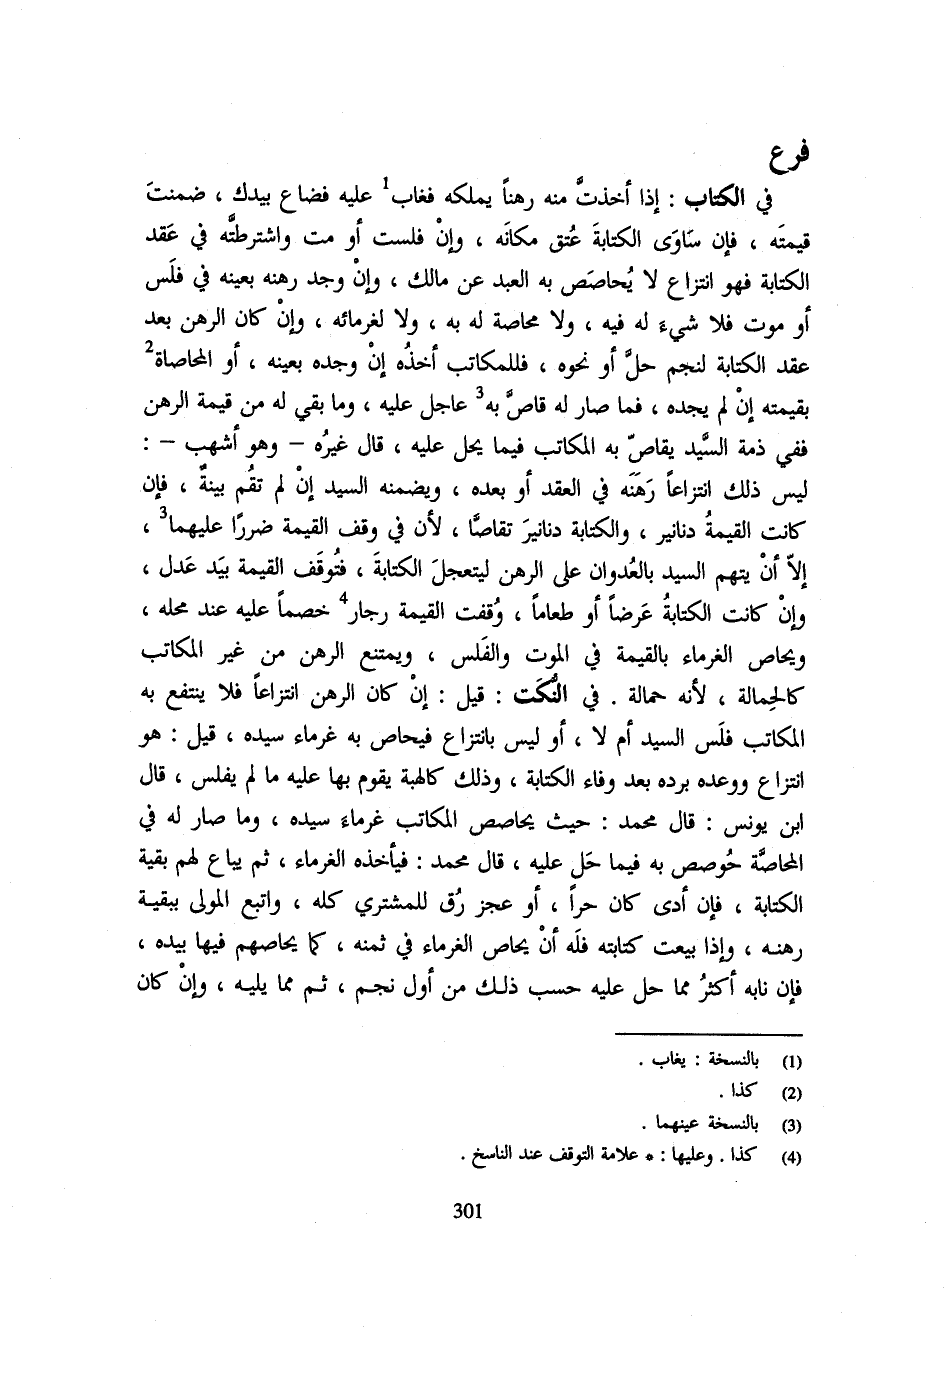 فرع
في الكتاب : إذا أخذتَّ منه رهناً يملكه فغاب1 عليه فضاع بيدك ، ضمنتَ
قيمتَه ، فإن سَاوَى الكتابةَ عُتق مكانَه ، وإنْ فلست أو مت واشترطتَّه في عَقد
الكتابة فهو انتزاع لا يُحاصَص به العبد عن مالك ، وإنْ وجد رهنه بعينه في فلَس
أو موت فلا شيءَ له فيه ، ولا محاصة له به ، ولا لغرمائه ، وإنْ كان الرهن بعد
عقد الكتابة لنجم حلَّ أو نحوه ، فللمكاتب أخذُه إنْ وجده بعينه ، أو المحاصاة2
بقيمته إنْ لم يجده ، فما صار له قاصَّ به3 عاجل عليه ، وما بقي له من قيمة الرهن
ففي ذمة السَّيد يقاصّ به المكاتب فيما يحل عليه ، قال غيرُه – وهو أشهب – :
ليس ذلك انتزاعاً رَهَنَه في العقد أو بعده ، ويضمنه السيد إنْ لم تقُم بينةٌ ، فإن
كانت القيمةُ دنانير ، والكتابة دنانيرَ تقاصَّا ، لأن في وقف القيمة ضررًا عليهما3 ،
إلاّ أنْ يتهم السيد بالعُدوان على الرهن ليتعجلَ الكتابةَ ، فتُوقَف القيمة بيَد عَدل ،
وإنْ كانت الكتابةُ عَرضاً أو طعاماً ، وُقفت القيمة رجار4 خصماً عليه عند محله ،
ويحاص الغرماء بالقيمة في الموت والفَلس ، ويمتنع الرهن من غير المكاتب
كالحِمالة ، لأنه حمالة . في النُّكَت : قيل : إنْ كان الرهن انتزاعاً فلا ينتفع به
المكاتب فلَس السيد أم لا ، أو ليس بانتزاع فيحاص به غرماء سيده ، قيل : هو
انتزاع ووعده برده بعد وفاء الكتابة ، وذلك كالهبة يقوم بها عليه ما لم يفلس ، قال
ابن يونس : قال محمد : حيث يحاصص المكاتب غرماءَ سيده ، وما صار له في
المحاصَّة حُوصص به فيما حَل عليه ، قال محمد : فيأخذه الغرماء ، ثم يباع لهم بقية
الكتابة ، فإن أدى كان حراً ، أو عجز رُق للمشتري كله ، واتبع المولى ببقية
رهنه ، وإذا بيعت كتابته فلَه أنْ يحاص الغرماء في ثمنه ، كما يحاصهم فيها بيده ،
فإن نابه أكثرُ مما حل عليه حسب ذلك من أول نجم ، ثم مما يليه ، وإنْ كان
(1) بالنسخة : يغاب .
(2) كذا .
(3) بالنسخة عينهما .
(4) كذا . وعليها : * علامة التوقف عند الناسخ .
301